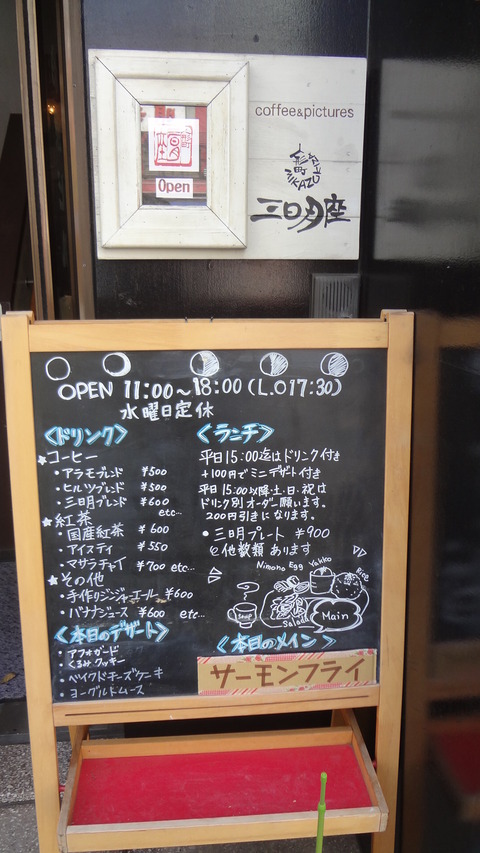 coffee&pictures
Open
三日月座
OPEN 11:00~18:00(L.O17:30)
水曜日定休
<ドリンク>
コーヒー
・アラモブレンド ¥500
・ヒルツブレンド ¥500
・三日月ブレンド ¥600
etc...
紅茶
・国産紅茶 ¥600
・アイスティ ¥550
・マサラチャイ ¥700 etc...
その他
・手作りジンジャエール ¥600
・バナナジュース ¥600 etc...
<本日のデザート>
・アフォガード
・くるみクッキー
・ベイクドチーズケーキ
・ヨーグルトムース
<ランチ>
平日15:00迄はドリンク付き
+100円でミニデザート付き
平日15:00以降・土・日・祝は
ドリンク別オーダー願います。
200円引きになります。
・三日月プレート ¥900
他数類あります
Nimono Egg Yakko Rice
Soup Salada Main
<本日のメイン>
サーモンフライ